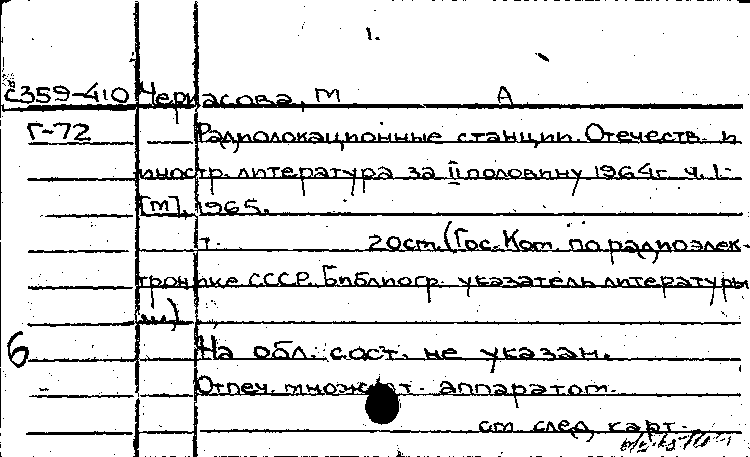 1.
С359-410 Черкасова, М А
Г-72 Радиолокационные станции. Отечеств. и
иностр. литература за II половину 1964г. ч. 1-
[М], 1965.
т. 20см. (Гос. Ком. по радиоэлек-
тронике СССР. Библиогр. указатель литературы
...)
6 На обл. сост. не указан.
Отпеч. множит. аппаратом.
см след. карт.